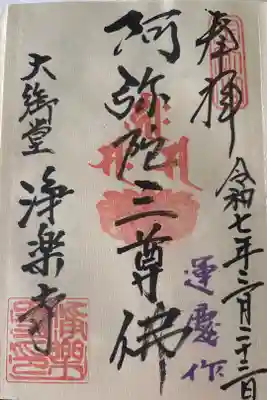 奉拝
令和七年三月二十二日
阿弥陀三尊佛
運慶作
大御堂
浄楽寺